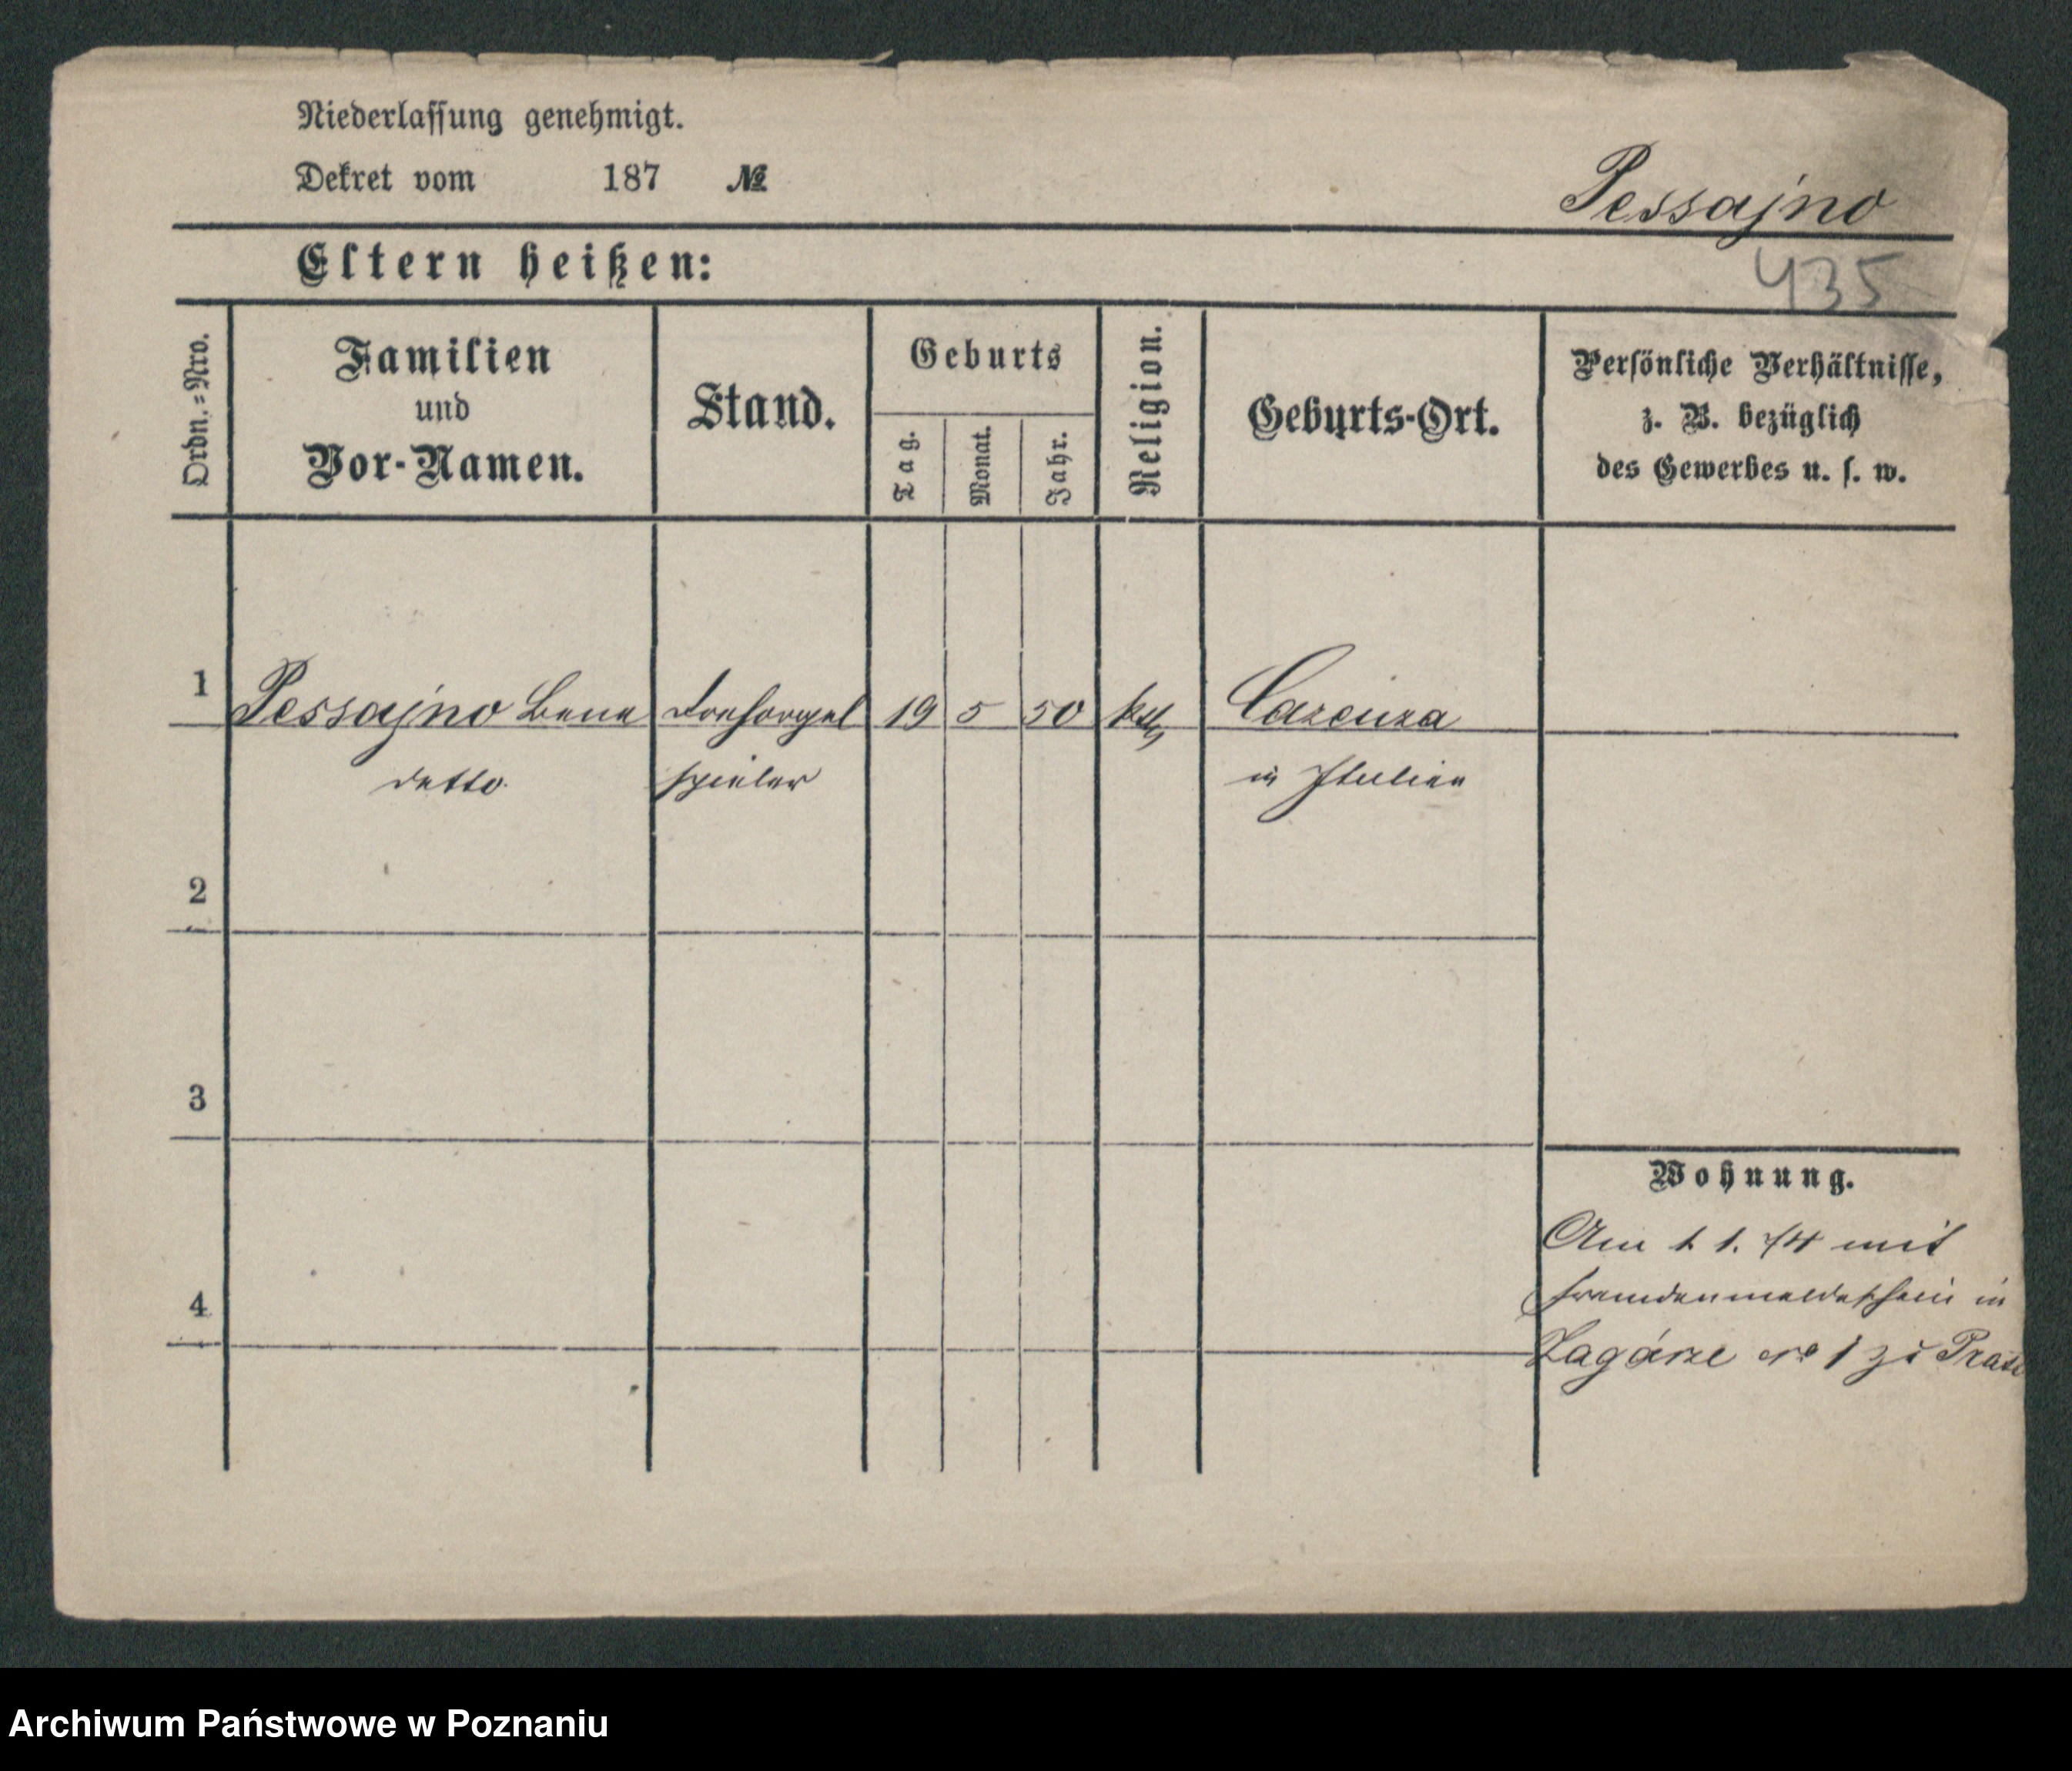 Niederlassung genehmigt.
Dekret vom 187 №
Pessajno
Eltern heißen:
435
Ordn.=Nro.
Familien
und
Vor-Namen.
Stand.
Geburts
Tag.
Monat.
Jahr.
Religion.
Geburts-Ort.
Persönliche Verhältnisse,
z. B. bezüglich
des Gewerbes u. s. w.
1 Pessajno Bene Drehorgel 19 5 50 kath
detto. spieler in Italien
2
3
Wohnung.
Am 1. 1. 74 mit
Fremdenmeldeschein in
4
Zagórze No 1 zu
Archiwum Państwowe w Poznaniu